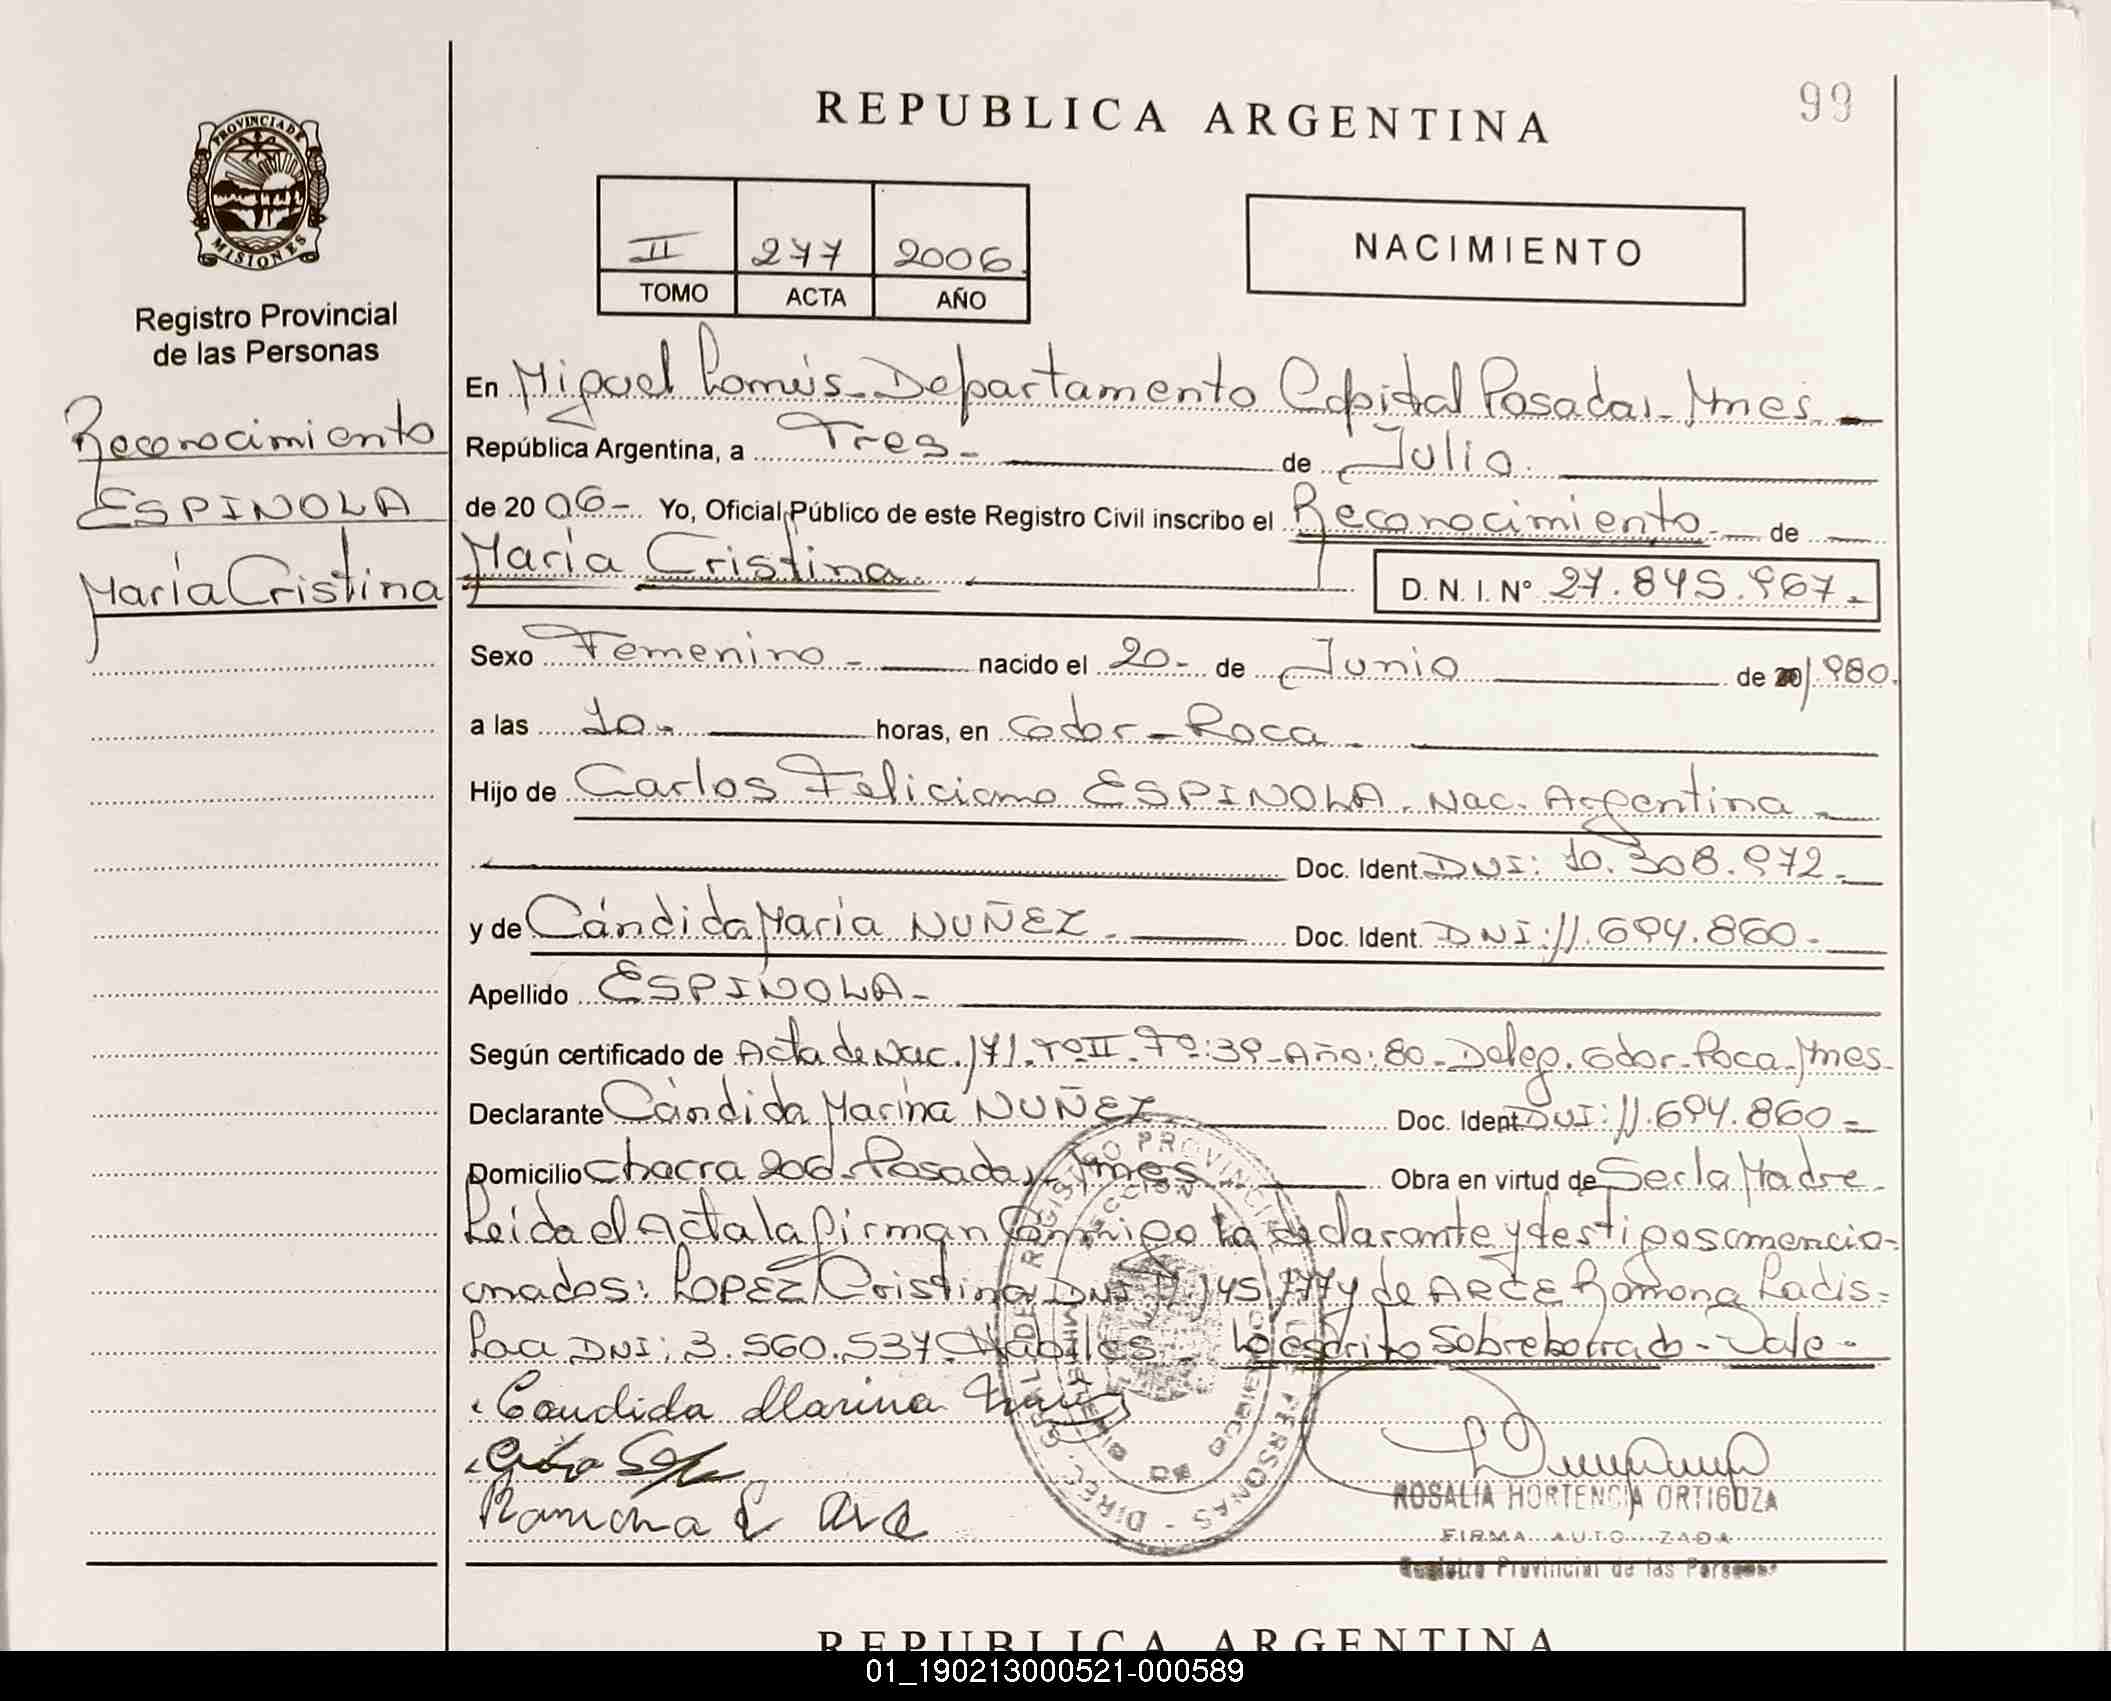 REPUBLICA ARGENTINA
99
PROVINCIA DE MISIONES
Registro Provincial
de las Personas
II 277 2006
TOMO ACTA AÑO
NACIMIENTO
Reconocimiento
ESPINOLA
María Cristina
En Miguel Lanús - Departamento Capital Posadas - Mnes -
República Argentina, a Tres - de Julio
de 20 06 - Yo, Oficial Público de este Registro Civil inscribo el Reconocimiento - de
María Cristina D. N. I. Nº 27.845.967 -
Sexo Femenino - nacido el 20 - de Junio de 1980.
a las 10 - horas, en Gdor - Roca -
Hijo de Carlos Feliciano ESPINOLA - Nac. Argentina -
Doc. Ident. DNI: 10.308.972 -
y de Cándida María NUÑEZ - Doc. Ident. DNI: 11.694.860 -
Apellido ESPINOLA -
Según certificado de Acta de Nac. 171 - Tº II - Fº: 39 - Año: 80 - Deleg. Gdor - Roca - Mnes -
Declarante Cándida Marina NUÑEZ Doc. Ident. DNI: 11.694.860 -
Domicilio Chacra Posadas - Mnes - Obra en virtud de Ser la Madre -
Leida el Acta la firman conmigo la declarante y testigos mencio-
nados: LOPEZ Cristina DNI y de ARCE Ramona Ladis=
laa DNI: 3.560.537 Hábiles - Lo escrito sobreborrado - Vale -
Candida Marina
Ramona L Arce
DIREC. GRAL. DE REGISTRO PROVINCIAL DE PERSONAS
ROSALIA HORTENCIA ORTIGOZA
FIRMA AUTORIZADA
Registro Provincial de las Personas
REPUBLICA ARGENTINA
01_190213000521-000589